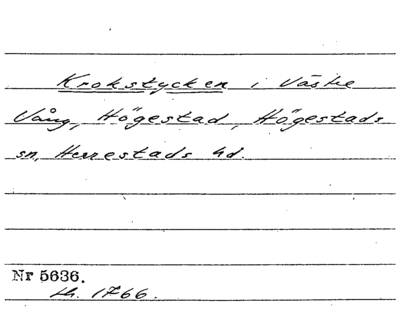 Krokstycken i Västre
Vång, Högestad, Högestads
sn, Herrestads hd.
Nr 5636.
1766.